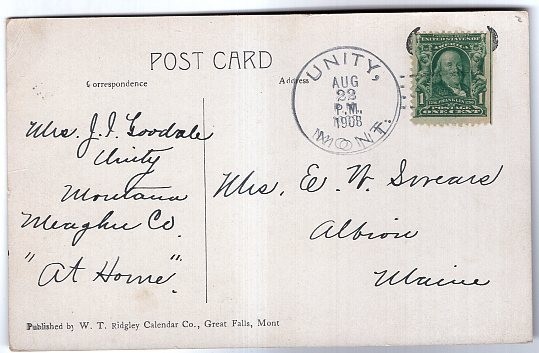 POST CARD
Correspondence
Address
UNITY,
AUG
22
P.M.
1908
MONT.
UNITED STATES OF AMERICA
1 1
POSTAGE
ONE CENT
Mrs. J. I. Goodale
Unity
Montana
Meagher Co.
"At Home".
Mrs. E. W.
Albion
Maine
Published by W. T. Ridgley Calendar Co., Great Falls, Mont